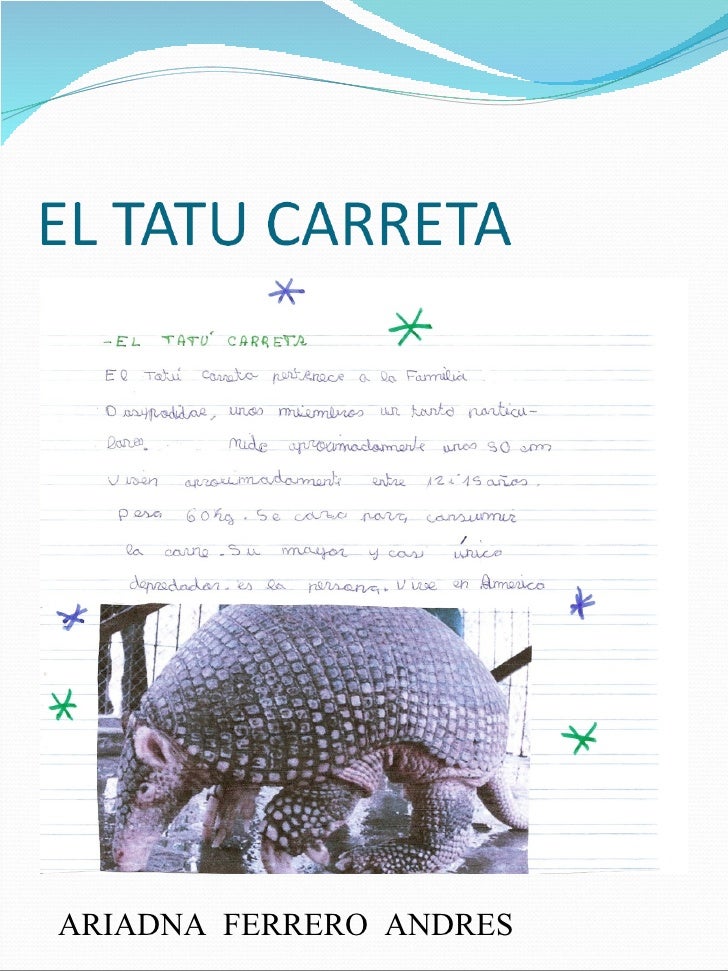 EL TATU CARRETA
-EL TATÚ CARRETA
El Tatú Carreta pertenece a la Familia.
Dasypodidae, unos miembros un tanto particu-
lares. Mide aproximadamente unos 90 cm
Viven aproximadamente entre 12 i 15 años.
Pesa 60kg. Se caza para consumir
la carne. Su mayor y casi único
depredador. es la persona. Vive en America
ARIADNA FERRERO ANDRES